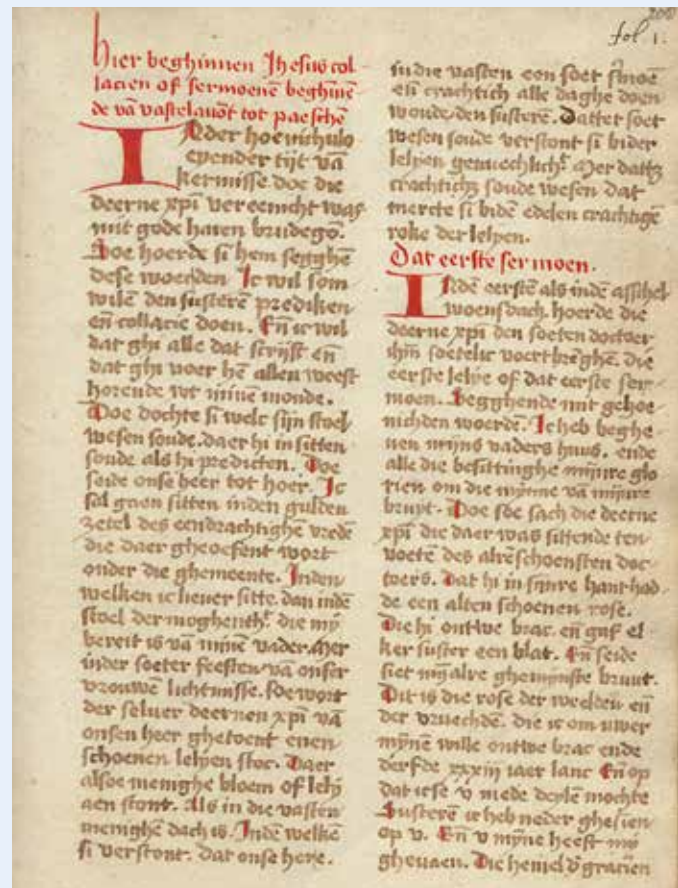 200
fol 1.
hier beghinnen Jhesus col
lacien of sermoenē beghinē
de vā vastelauōt tot paeschē
INder hoechtijt
tijt vā
kermisse doe die
deerne xpī vereenicht was
mit gode haren brudegō.
Doe hoerde si hem segghē
dese woerden Ic wil som
wilen den susterē prediken
eñ collacie doen. Eñ ic wil
dat ghi alle dat scrijft eñ
dat ghi voer hē allen weest
horende wt mīnē monde.
Doe dochte si welc sijn stoel
wesen soude. daer hi in sitten
soude als hi predicten. Doe
seide onse heer tot hoer. Ic
sal gaen sitten inden gulden
zetel des eendrachtighē vredē
die daer gheoefent wort
onder die ghemeente. Inden
welken ic lieuer sitte. dan indē
stoel der moghenthᵗ. die mȳ
bereit is vā mīnē vader. Mer
inder soeter feesten vā onser
vrouwē lichtmisse. soe wort
der seluer deernen xpī vā
onsen heer ghetoent enen
schoenen lelyen stoc. Daer
alsoe menighe bloem of lely
aen stont. Als in die vasten
menighē dach is. Indē welkē
si verstont. dat onse here.
in die vasten een soet s̄moē
eñ crachtich alle daghe doen
woude den susterē. Dattet soet
wesen soude verstont si bider
lelyen genuechlichᵗ. Mer dattꝫ
crachtichꝫ soude wesen dat
mercte si bidē edelen crachtigē
roke der lelyen.
Dat eerste sermoen.
INdē eersten als indē asschel
woensdach. hoerde die
deerne xpī den soeten doctoer
ihm̄ soetelic voert brēghē. die
eerste lelye of dat eerste ser
moen. Segghende mit gehoe
nichden woerdē. Ic heb beghe
uen mijns vaders huus. ende
alle die besittinghe mijnre glo
rien om die mȳnne vā mijnre
bruyt. Doe soe sach die deerne
xpī die daer was sittende ten
voetē des alreschoensten doc
toers. Dat hi in sijnre hant had
de een alten schoenen rose.
Die hi ontwe brac. eñ gaf el
ker suster een blat. Eñ seide
siet mȳ alre ghemȳnste bruut.
Dit is die rose der weelden eñ
der vruechdē. die ic om uwer
mȳnē wille ontwe brac ende
derfde xxxiij iaer lanc Eñ op
dat icse v mede deylē mochte
Susterē ic heb neder ghesien
op v. Eñ v mȳne heeft mȳ
gheuaen. Die hemel d̄ gracien